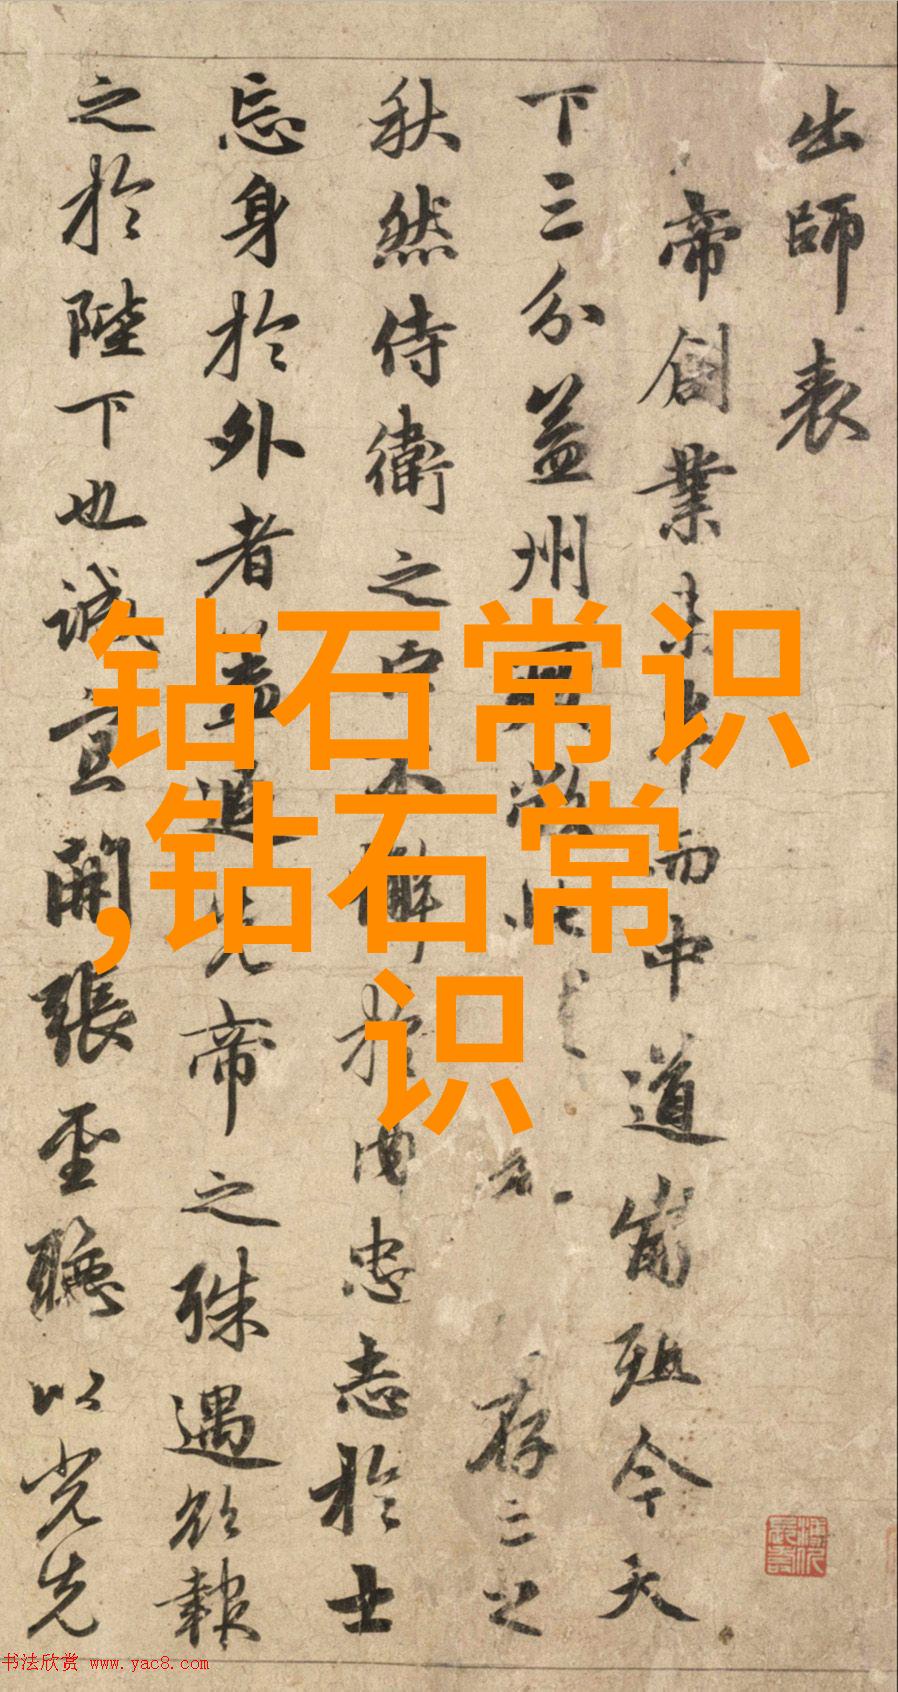 出師表
帝創業未半而中道崩殂今天
下三分益州
存亡之
秋然侍衛之臣不懈於內忠志於士
忘身於外者蓋追先帝之殊遇欲報
之於陛下也誠宜開張聖聽以光先
钻石常识
,钻石常
识
书法欣赏 www.yac8.com